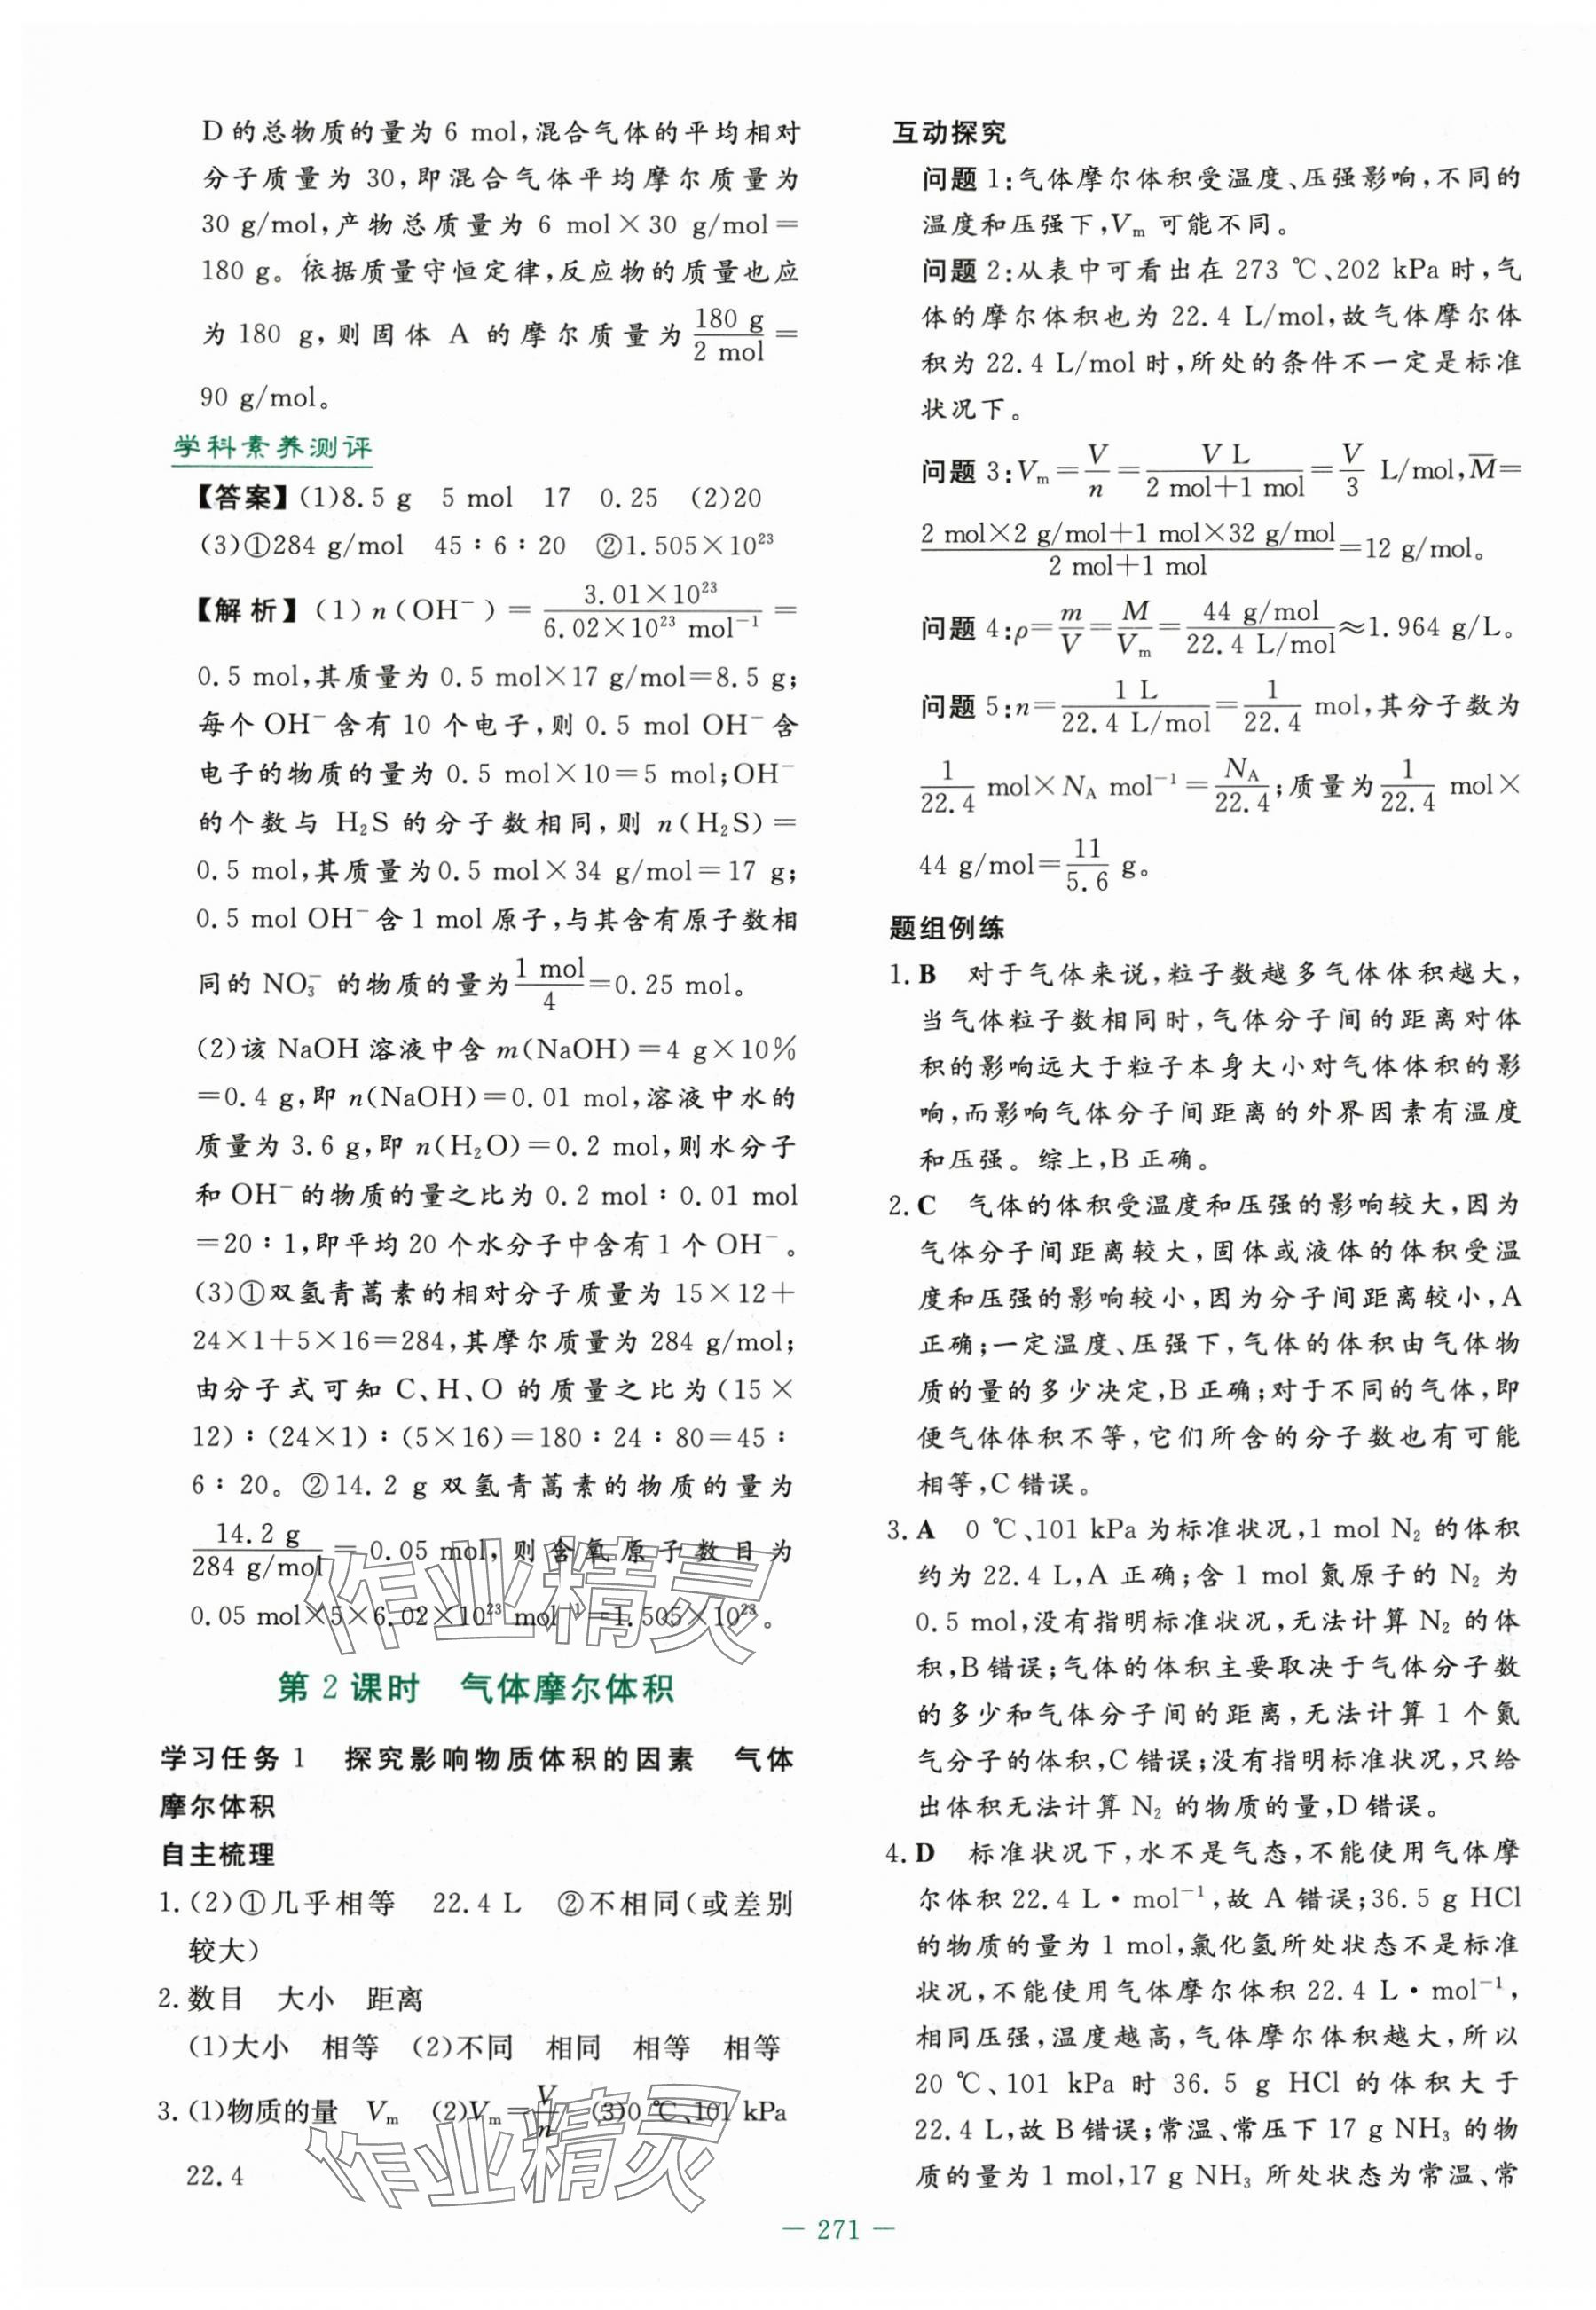 D的总物质的量为 6 mol,混合气体的平均相对
分子质量为 30,即混合气体平均摩尔质量为
30 g/mol,产物总质量为 6 mol×30 g/mol=
180 g。依据质量守恒定律,反应物的质量也应
为 180 g,则固体 A 的摩尔质量为 180 g/2 mol=
90 g/mol。
学科素养测评
【答案】(1)8.5 g 5 mol 17 0.25 (2)20
(3)①284 g/mol 45∶6∶20 ②1.505×10²³
【解析】(1)n(OH⁻)=3.01×10²³/6.02×10²³ mol⁻¹=
0.5 mol,其质量为 0.5 mol×17 g/mol=8.5 g;
每个 OH⁻含有 10 个电子,则 0.5 mol OH⁻含
电子的物质的量为 0.5 mol×10=5 mol;OH⁻
的个数与 H₂S 的分子数相同,则 n(H₂S)=
0.5 mol,其质量为0.5 mol×34 g/mol=17 g;
0.5 mol OH⁻含 1 mol 原子,与其含有原子数相
同的 NO₃⁻ 的物质的量为 1 mol/4=0.25 mol。
(2)该 NaOH 溶液中含 m(NaOH)=4 g×10%
=0.4 g,即 n(NaOH)=0.01 mol,溶液中水的
质量为 3.6 g,即 n(H₂O)=0.2 mol,则水分子
和 OH⁻的物质的量之比为 0.2 mol∶0.01 mol
=20∶1,即平均 20 个水分子中含有 1 个 OH⁻。
(3)①双氢青蒿素的相对分子质量为 15×12+
24×1+5×16=284,其摩尔质量为 284 g/mol;
由分子式可知 C、H、O 的质量之比为(15×
12)∶(24×1)∶(5×16)=180∶24∶80=45∶
6∶20。②14.2 g 双氢青蒿素的物质的量为
14.2 g/284 g/mol=0.05 mol,则含氧原子数目为
0.05 mol×5×6.02×10²³ mol⁻¹=1.505×10²³。
第 2 课时 气体摩尔体积
学习任务 1 探究影响物质体积的因素 气体
摩尔体积
自主梳理
1.(2)①几乎相等 22.4 L ②不相同(或差别
较大)
2.数目 大小 距离
(1)大小 相等 (2)不同 相同 相等 相等
3.(1)物质的量 Vₘ (2)Vₘ=V/n (3)0 ℃、101 kPa
22.4
互动探究
问题 1:气体摩尔体积受温度、压强影响,不同的
温度和压强下,Vₘ 可能不同。
问题 2:从表中可看出在 273 ℃、202 kPa 时,气
体的摩尔体积也为 22.4 L/mol,故气体摩尔体
积为 22.4 L/mol 时,所处的条件不一定是标准
状况下。
问题 3:Vₘ=V/n=V L/2 mol+1 mol=V/3 L/mol,M̅=
2 mol×2 g/mol+1 mol×32 g/mol/2 mol+1 mol=12 g/mol。
问题 4:ρ=m/V=M/Vₘ=44 g/mol/22.4 L/mol≈1.964 g/L。
问题 5:n=1 L/22.4 L/mol=1/22.4 mol,其分子数为
1/22.4 mol×N_A mol⁻¹=N_A/22.4;质量为 1/22.4 mol×
44 g/mol=11/5.6 g。
题组例练
1.B 对于气体来说,粒子数越多气体体积越大,
当气体粒子数相同时,气体分子间的距离对体
积的影响远大于粒子本身大小对气体体积的影
响,而影响气体分子间距离的外界因素有温度
和压强。综上,B 正确。
2.C 气体的体积受温度和压强的影响较大,因为
气体分子间距离较大,固体或液体的体积受温
度和压强的影响较小,因为分子间距离较小,A
正确;一定温度、压强下,气体的体积由气体物
质的量的多少决定,B 正确;对于不同的气体,即
便气体体积不等,它们所含的分子数也有可能
相等,C 错误。
3.A 0 ℃、101 kPa 为标准状况,1 mol N₂ 的体积
约为 22.4 L,A 正确;含 1 mol 氮原子的 N₂ 为
0.5 mol,没有指明标准状况,无法计算 N₂ 的体
积,B 错误;气体的体积主要取决于气体分子数
的多少和气体分子间的距离,无法计算 1 个氮
气分子的体积,C 错误;没有指明标准状况,只给
出体积无法计算 N₂ 的物质的量,D 错误。
4.D 标准状况下,水不是气态,不能使用气体摩
尔体积 22.4 L·mol⁻¹,故 A 错误;36.5 g HCl
的物质的量为 1 mol,氯化氢所处状态不是标准
状况,不能使用气体摩尔体积 22.4 L·mol⁻¹,
相同压强,温度越高,气体摩尔体积越大,所以
20 ℃、101 kPa 时 36.5 g HCl 的体积大于
22.4 L,故 B 错误;常温、常压下 17 g NH₃ 的物
质的量为 1 mol,17 g NH₃ 所处状态为常温、常
— 271 —
作业精灵
作业精灵